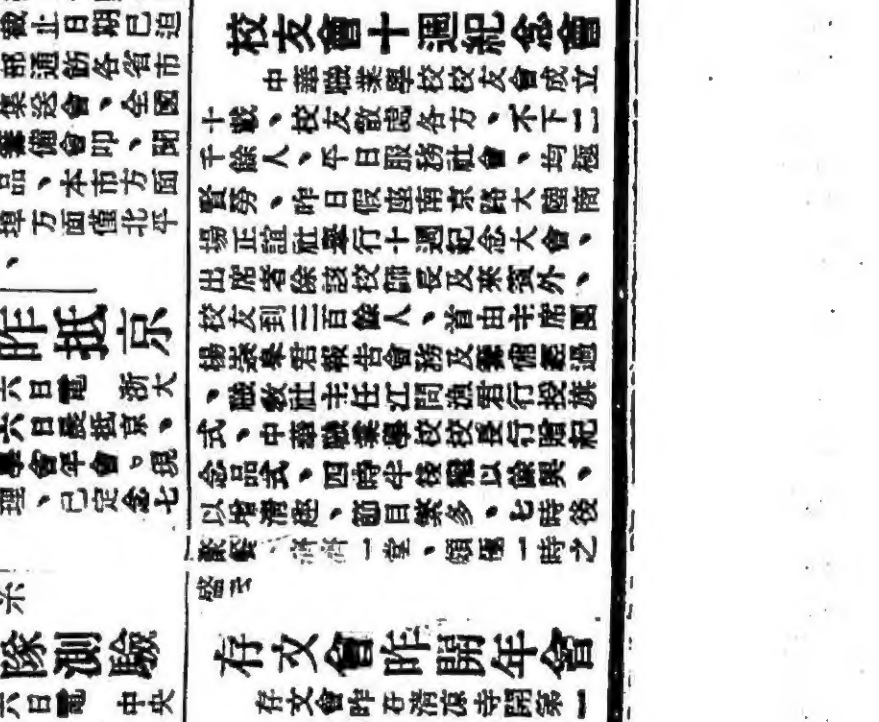 截止日期已迫
部通飭各省市
集送會、全國
籌備會叩、聞
品、本市方面
埠方面僅北平
、
昨抵京
六日電 浙大
六日晨抵京、
學會年會。現
理、已定念七
示
隊測驗
六日電 中央
校友會十週紀念會
中華職業學校校友會成立
十載、校友散處各方、不下二
千餘人、平日服務社會、均極
賢勞、昨日假座南京路大陸商
場正誼社舉行十週紀念大會、
出席者除該校師長及來賓外、
校友到三百餘人、首由主席團
楊崇皋君報告會務及籌備經過
、職教社主任江問漁君行授旗
式、中華職業學校校長行贈紀
念品式、四時半後繼以餘興、
以增清趣、節目繁多、七時後
聚餐、濟濟一堂、頗極一時之
盛云
存文會昨開年會
存文會昨在清涼寺開第一